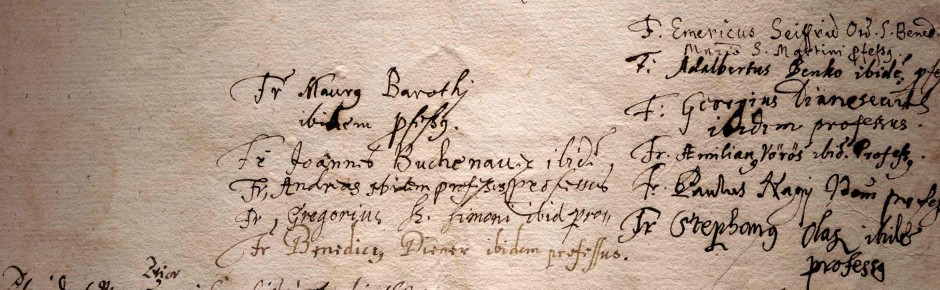 Fr Maurꝯ Barothj
ibidem pfessꝯ.
Fr Joannes Buchenauer ibid:
Fr, Andreas ibidem professus
Fr, Gregorius Simoni ibid pro
Fr Benedictꝯ Diener ibidem professus.
F. Emericus Seiffrid Ord. S. Bened
S. Martini pfessꝯ.
F: Adalbertus Benko ibidē
F: Georgius
ibidem professus.
Fr. Æmilianꝯ Vörös ibid. Professꝯ
Fr. Paulus Nagy
Fr Stephanꝯ Olaz ibidē
professꝯ
Prior